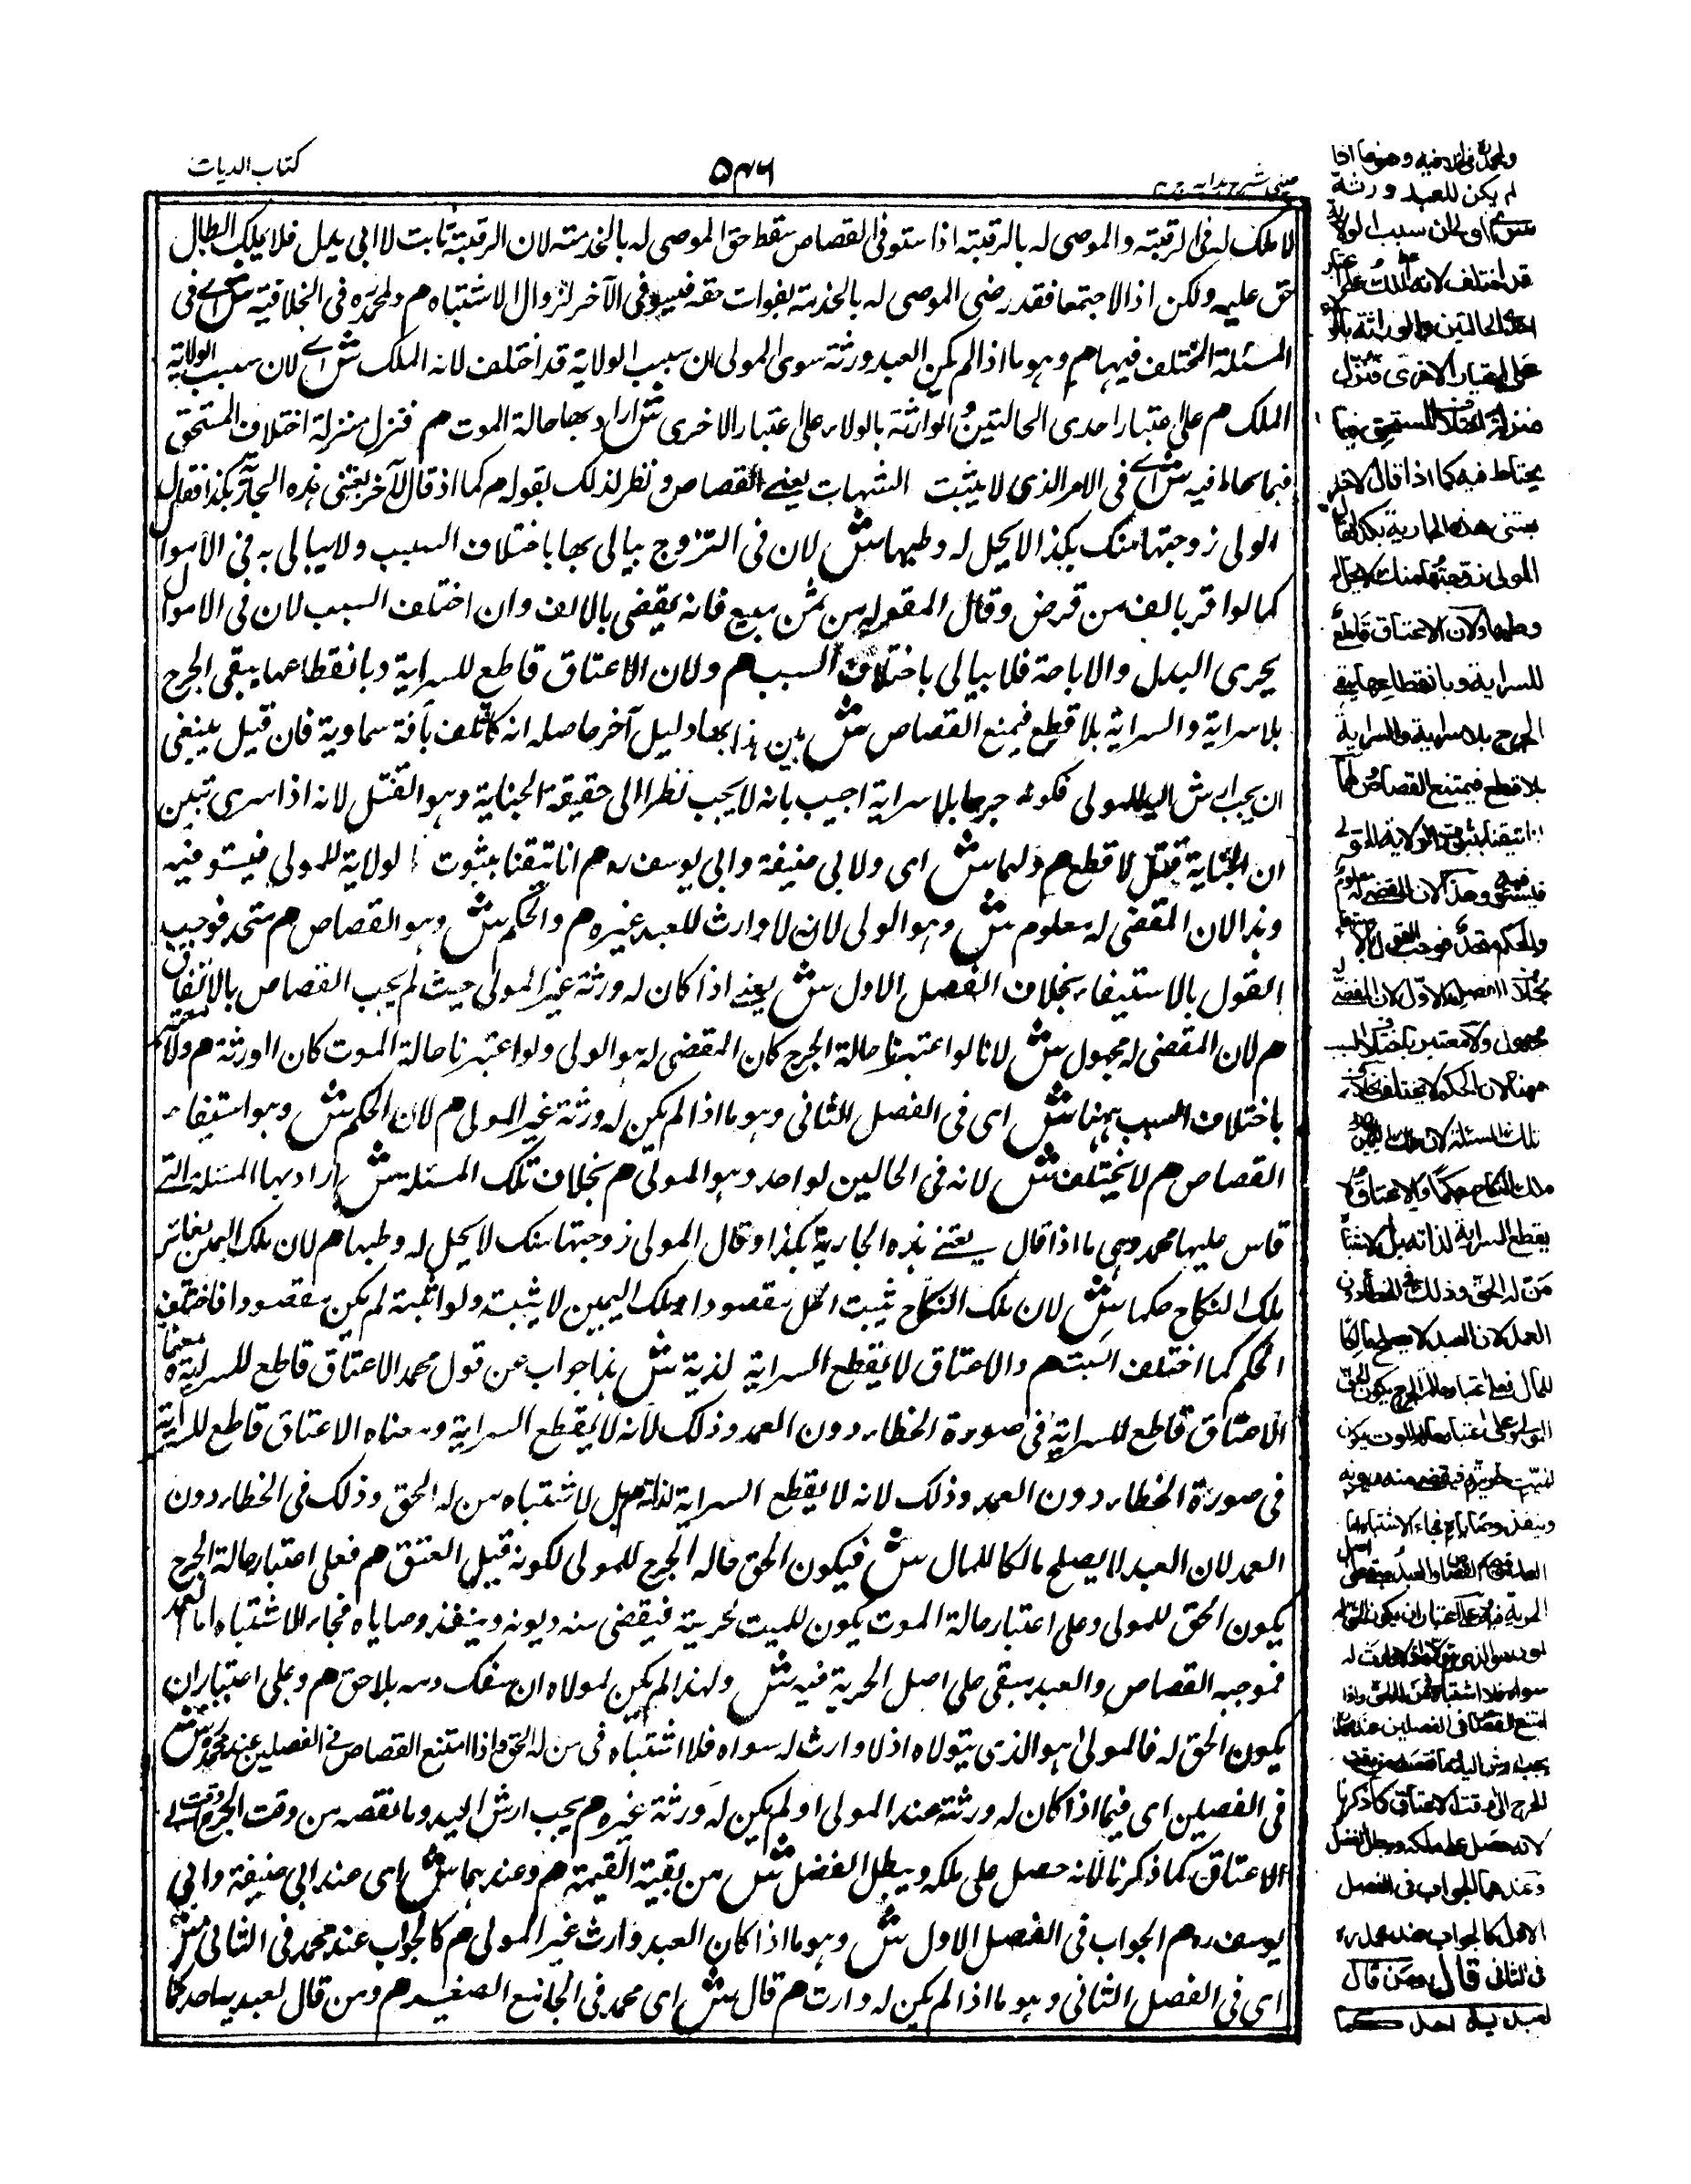 كتاب الديات
٥٤٦
عينى شرح هدايه ج ٣
لا ملك له فى الرقبة والموصى له بالرقبة اذا ستوفى القصاص سقط حق الموصى له بالخدمة لان الرقبة ثابت لا الى بدل فلا يملك ابطال
حق عليه ولكن اذا لاجتمعا فقد رضى الموصى له بالخدمة بفوات حقه فيستوفى الآخر لزوال الاشتباه هم ولمحمد ره فى الخلافية ش اے فى
المسئلة المختلف فيها هم وهو ما اذا لم يكن العبد ورثة سوى المولى ان سبب الولاية قد اختلف لانه الملك ش اے لان سبب الولاية
الملك م على اعتبار احدى الحالتين والوراثة بالولاء على اعتبار الاخرى ش اراد بها حالة الموت هم فنزل منزلة اختلاف المستحق
فيما يحتاط فيه ش اے فى الامر الذى لا يثبت الشبهات يعنے القصاص ونظر لذلك بقوله م كما اذا قال لآخر بعتنى هذه الجارية بكذا فقال
المولى زوجتها منك بكذا لا يحل له وطيها ش لان فى التزوج يبالى بها باختلاف السبب ولا يبالى به فى الاموال
كما لو اقر بالف من قرض وقال المقر له من ثمن مبيع فانه يقضى بالالف وان اختلف السبب لان فى الاموال
يجرى البدل والاباحة فلا يبالى باختلاف السبب هم ولان الاعتاق قاطع للسراية وبانقطاعها يبقى الجرح
بلا سراية والسراية بلا قطع فيمنع القصاص ش بين هذا بها دليل آخر حاصله انه كالتلف بآفة سماوية فان قيل ينبغى
ان يجب ارش اليد للمولى فكونه جرحا بلا سراية اجيب بانه لا يجب نظرا الى حقيقة الجناية وهو القتل لانه اذا سرى تبين
ان الجناية قتل لا قطع هم ولهما ش اى ولابى حنيفة وابى يوسف ره هم انا تيقنا بثبوت الولاية للمولى فيستوفيه
وهذا لان المقضى له معلوم ش وهو المولى لانه لا وارث للعبد غيره هم والحكم ش وهو القصاص هم متحد فوجب
القول بالاستيفاء بخلاف الفصل الاول ش يعنے اذا كان له ورثة غير المولى حيث لم يجب القصاص بالاتفاق
هم لان المقضى له مجهول ش لانا لو اعتبرنا حالة الجرح كان المقضى له هو المولى ولو اعتبرنا حالة الموت كان الورثة هم ولا معتبر
باختلاف السبب ههنا ش اى فى الفصل الثانى وهو ما اذا لم يكن له ورثة غير المولى م لان الحكم ش وهو استيفاء
القصاص هم لا يختلف ش لانه فى الحالين لواحد وهو المولى هم بخلاف تلك المسئلة ش اراد بها المسئلة التے
قاس عليها محمد وهى ما اذا قال بعتنے هذه الجارية بكذا وقال المولى زوجتها منك لا يحل له وطيها هم لان ملك اليمين يغائر
ملك النكاح حكما ش لان ملك النكاح يثبت الحل مقصودا وملك اليمين لا يثبته ولو اثبته لم يكن مقصودا فاختلف
الحكم كما اختلف السبب هم والاعتاق لا يقطع السراية لذية ش هذا جواب عن قول محمد الاعتاق قاطع للسراية معناه
الاعتاق قاطع للسراية فى صورة الخطاء دون العمد وذلك لانه لا يقطع السراية ومعناه الاعتاق قاطع للسراية
فى صورة الخطاء دون العمد وذلك لانه لا يقطع السراية لذاته بل لاشتباه من له الحق وذلك فى الخطاء دون
العمد لان العبد لا يصلح مالكا للمال ش فيكون الحق حاله الجرح للمولى لكونه قبل العتق هم فعلى اعتبار حالة الجرح
يكون الحق للمولى وعلى اعتبار حالة الموت يكون للميت لحريته فيقضى منه ديونه وينفذ وصاياه فجاء الاشتباه اما العمد
فموجبه القصاص والعبد مبقى على اصل الحرية فيه ش ولهذا لم يكن لمولاه ان سفك دمه بلا حق هم وعلى اعتبار ان
يكون الحق له فالمولى هو الذى يتولاه اذ لا وارث له سواه فلا اشتباه فى من له الحق واذا امتنع القصاص فے الفصلين عند محمد ره ش
فى الفصلين اى فيما اذا كان له ورثة عند المولى او لم يكن له ورثة غيره هم يجب ارش اليد وما نقصه من وقت الجرح الى وقت
الاعتاق كما ذكرنا لانه حصل على ملكه ويبطل الفضل ش من بقية القيمة هم وعندهما ش اى عند ابى حنيفة وابى
يوسف ره م الجواب فى الفصل الاول ش وهو ما اذا كان العبد وارث غير المولى م كالجواب عند محمد فى الثانى ش
اى فى الفصل الثانى وهو ما اذا لم يكن له وارث هم قال ش اى محمد فى الجامع الصغير هم ومن قال لعبديه احدكما
ولمحمد فى الخلافية وهو ما اذا
لم يكن للعبد ورثة
سوى المولى ان سبب الولاية
قد اختلف لانه الملك على اعتبار
احدى الحالتين والوراثة بالولاء
على اعتبار الاخرى فنزل
منزلة اختلاف المستحق فيما
يحتاط فيه كما اذا قال لاخر
بعتنى هذه الجارية بكذا فقال
المولى زوجتها منك لا يحل له
وطيها ولان الاعتاق قاطع
للسراية وبانقطاعها يبقى
الجرح بلا سراية والسراية
بلا قطع فيمتنع القصاص ولهما
انا تيقنا بثبوت الولاية للمولى
فيستوفيه وهذا لان المقضى له معلوم
والحكم متحد فوجب القول بالاستيفاء
بخلاف الفصل الاول لان المقضى له
مجهول ولا معتبر باختلاف السبب
ههنا لان الحكم لا يختلف بخلاف
تلك المسئلة لان ملك اليمين يغائر
ملك النكاح حكما والاعتاق لا
يقطع السراية لذاته بل لاشتباه
من له الحق وذلك فى الخطأ دون
العمد لان العبد لا يصلح مالكا
للمال فعلى اعتبار حالة الجرح يكون الحق
للمولى وعلى اعتبار حالة الموت يكون
للميت لحريته فيقضى منه ديونه
وينفذ وصاياه فجاء الاشتباه اما
العمد فموجبه القصاص والعبد مبقى على اصل
الحرية فيه وعلى اعتبار ان يكون الحق له
فالمولى هو الذى يتولاه اذ لا وارث له
سواه فلا اشتباه فى من له الحق واذا
امتنع القصاص فى الفصلين عند محمد
يجب ارش اليد وما نقصه من وقت
الجرح الى وقت الاعتاق كما ذكرنا
لانه حصل على ملكه ويبطل الفضل
وعندهما الجواب فى الفصل
الاول كالجواب عند محمد ره
فى الثانى قال ومن قال
لعبديه احدكما